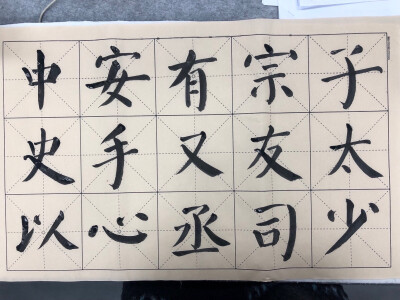 中安有宗子
史手又友太
以心丞司少